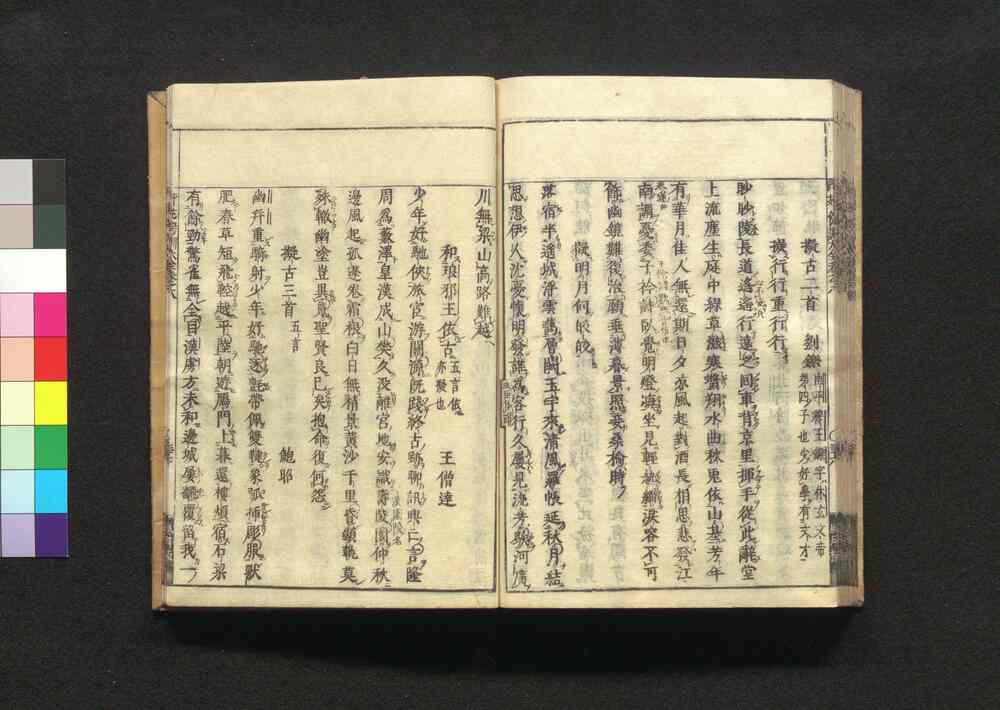 擬古二首 劉鑠 南平穆王鑠字休玄文帝第四子也少好學有文才
擬行行重行行
眇眇陵長道遙遙行遠之回車背京里揮手從此辭堂
上流塵生庭中緑草滋寒螿翔水曲秋兎依山基芳年
有華月佳人無還期日夕凉風起對酒長相思悲發江
南調憂委子衿詩臥覺明燈晦坐見輕紈緇淚容不可
飾幽鏡難復治願垂薄暮景照妾桑榆時
擬明月何皎皎
落宿半遥城浮雲藹層闕玉宇來清風羅帳延秋月結
思想伊人沈憂懷明發誰爲客行久屡見流芳歇河廣
川無梁山高路難越
和琅邪王依古 五言依古亦擬也 王僧達
少年好馳俠旅宦游關源既踐終古跡聊訊興亡言隆
周爲藪澤皇漢成山樊久没離宮地安識壽陵園仲秋
邊風起孤蓬卷霜根白日無精景黄沙千里昏顯軌莫
殊轍幽塗豈異魂聖賢良已矣抱命復何怨
擬古三首 五言 鮑昭
幽并重騎射少年好馳逐氈帶佩雙鞬象弧挿彫服獸
肥春草短飛鞚越平陸朝遊鴈門上暮還樓煩宿石梁
有餘勁驚雀無全目漢虜方未和邊城屡翻覆留我一